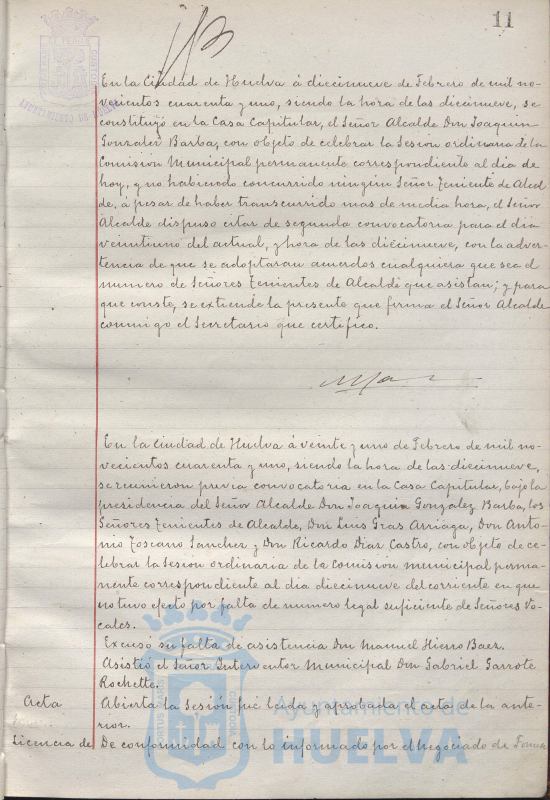 11
En la Ciudad de Huelva á diecinueve de Febrero de mil no-
vecientos cuarenta y uno, siendo la hora de las diecinueve, se
constituyó en la Casa Capitular, el Señor Alcalde Don Joaquin
Gonzalez Barba, con objeto de celebrar la Sesion ordinaria de la
Comision Municipal permanente correspondiente al dia de
hoy, y no habiendo concurrido ningún Señor Teniente de Alcal
de, á pesar de haber transcurrido mas de media hora, el Señor
Alcalde dispuso citar de segunda convocatoria para el dia
veintiuno del actual, y hora de las diecinueve, con la adver-
tencia de que se adoptaran acuerdos cualquiera que sea el
numero de Señores Tenientes de Alcalde que asistan; y para
que conste, se extiende la presente que firma el Señor Alcalde
conmigo el Secretario que certifico.
En la Ciudad de Huelva á veinte y uno de Febrero de mil no-
vecientos cuarenta y uno, siendo la hora de las diecinueve,
se reunieron previa convocatoria en la Casa Capitular, bajo la
presidencia del Señor Alcalde Don Joaquin Gonzalez Barba, los
Señores Tenientes de Alcalde, Don Luis Gras Arriaga, Don Anto-
nio Toscano Sanchez y Don Ricardo Diaz Castro, con objeto de ce-
lebrar la Sesion ordinaria de la Comision municipal perma-
nente correspondiente al dia diecinueve del corriente en que
no tuvo efecto por falta de numero legal suficiente de Señores Vo-
cales.
Excusó su falta de asistencia Don Manuel Hierro Baez.
Asistió el Señor Interventor Municipal Don Gabriel Garrote
Rochette.
Acta
Abierta la Sesión fué leida y aprobada el acta de la ante-
rior.
Licencia de
De conformidad con lo informado por el Negociado de Fomen
HUELVA